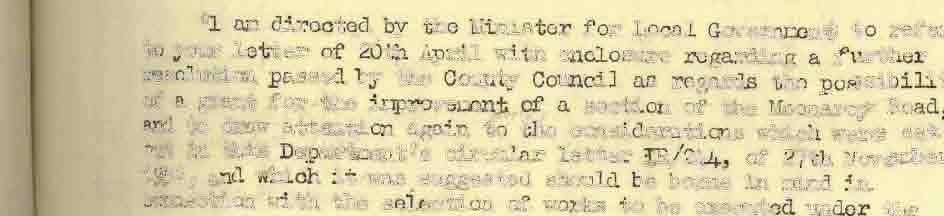 "I am directed by the Minister for Local Government to refer
to your letter of 20th April with enclosure regarding a further
resolution passed by the County Council as regards the possibili
of a grant for the improvement of a section of the Road,
and to draw attention again to the considerations which were set
out in this Department's circular letter of 27th November
and which it was suggested should be borne in mind in
connection with the selection of works to be executed under the